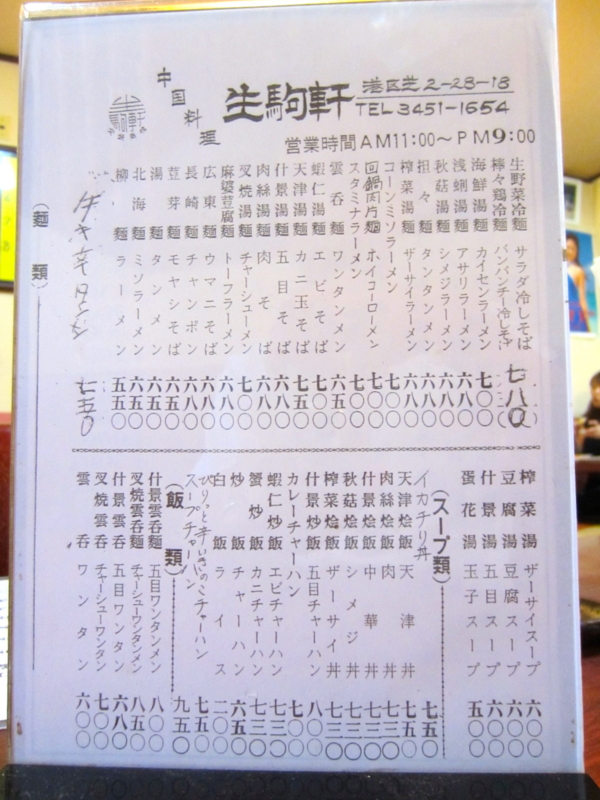 中国料理
生駒軒
港区芝2-28-18
TEL 3451-1654
営業時間 AM11:00〜PM9:00
生野菜冷麺 サラダ冷しそば
棒々鶏冷麺 バンバンチー冷しそば 七八〇
海鮮湯麺 カイセンラーメン 七〇〇
浅蜊湯麺 アサリラーメン 六八〇
秋菇湯麺 シメジラーメン 六八〇
担々麺 タンタンメン 六八〇
榨菜湯麺 ザーサイラーメン 六八〇
コーンミソラーメン 七〇〇
回鍋肉片麺 ホイコーローメン 七〇〇
スタミナラーメン 七〇〇
雲呑麺 ワンタンメン 六五〇
蝦仁湯麺 エビそば 七〇〇
天津湯麺 カニ玉そば 七五〇
什景湯麺 五目そば 六八〇
肉絲湯麺 肉そば 六八〇
叉焼湯麺 チャーシューメン 七〇〇
麻婆荳腐麺 トーフラーメン 六八〇
広東麺 ウマニそば 六八〇
長崎麺 チャンポン 六八〇
荳芽麺 モヤシそば 六五〇
湯麺 タンメン 六五〇
北海麺 ミソラーメン 六五〇
柳麺 ラーメン 五五〇
七五〇
(麺類)
榨菜湯 ザーサイスープ 六〇〇
豆腐湯 豆腐スープ 六〇〇
什景湯 五目スープ 六〇〇
蛋花湯 玉子スープ 五〇〇
(スープ類)
イカチリ丼 七五〇
天津烩飯 天津丼 七五〇
肉絲烩飯 肉丼 七三〇
什景烩飯 中華丼 七三〇
秋菇烩飯 シメジ丼 七三〇
榨菜烩飯 ザーサイ丼 七三〇
什景炒飯 五目チャーハン 八〇〇
カレーチャーハン 七〇〇
蝦仁炒飯 エビチャーハン 七三〇
蟹炒飯 カニチャーハン 七三〇
炒飯 チャーハン 六五〇
白飯 ライス 二〇〇
ぴりっと辛いきのこチャーハン 七五〇
スープチャーハン 九五〇
(飯類)
什景雲呑麺 五目ワンタンメン 八〇〇
叉焼雲呑麺 チャーシューワンタンメン 八五〇
什景雲呑 五目ワンタン 六八〇
叉焼雲呑 チャーシューワンタン 七〇〇
雲呑 ワンタン 六〇〇